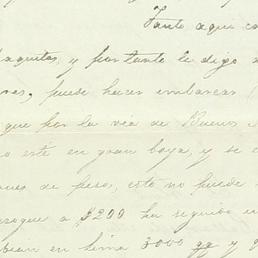 Tanto aqui co
aquitos, y por tanto le digo a
res, puede hacer embarcar
que por la via de Buenos
o este en gran boya, y se c
de peso, esto no puede
azogue a $200 ha seguido
bian en lima 3000 qq y q